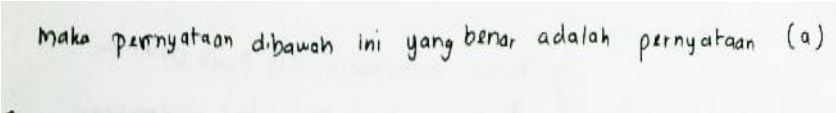 Maka pernyataan dibawah ini yang benar adalah pernyataan (a)